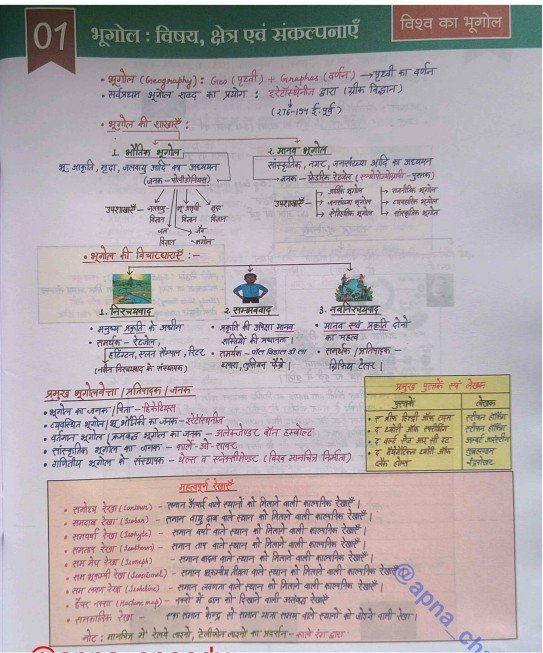 01
भूगोल : विषय, क्षेत्र एवं संकल्पनाएँ
विश्व का भूगोल
• भूगोल (Geography) : Geo (पृथ्वी) + Graphos (वर्णन) → पृथ्वी का वर्णन
• सर्वप्रथम भूगोल शब्द का प्रयोग : इरेटॉस्थेनीज द्वारा (ग्रीक विद्वान)
(276-194 ई. पूर्व)
• भूगोल की शाखाएँ :
1. भौतिक भूगोल
भू-आकृति, मृदा, जलवायु आदि का अध्ययन
(जनक - पोलीडोनियस)
उपशाखाएँ
जलवायु विज्ञान
भू-आकृति विज्ञान
मृदा विज्ञान
जल विज्ञान
जैव भूगोल
2. मानव भूगोल
सांस्कृतिक, नगर, जनसंख्या आदि का अध्ययन
जनक - फ्रेडरिक रेटजेल (एन्थ्रोपोज्योग्राफी - पुस्तक)
उपशाखाएँ
आर्थिक भूगोल
राजनीतिक भूगोल
जनसंख्या भूगोल
व्यवहारिक भूगोल
ऐतिहासिक भूगोल
सांस्कृतिक भूगोल
• भूगोल की विचारधाराएँ :-
1. निश्चयवाद
• मनुष्य प्रकृति के अधीन
• समर्थक - रेटजेल,
हटिंगटन, एलन सैम्पल, रिटर
(नवीन निश्चयवाद के संस्थापक)
2. सम्भववाद
• प्रकृति की अपेक्षा मानव
शक्तियों की प्रधानता
• समर्थक - पॉल विडाल डी ला
ब्लाश, लुसियन फैब्रे
3. नवनिश्चयवाद
• मानव एवं प्रकृति दोनों
का महत्व
• समर्थक / प्रतिपादक -
ग्रिफिथ टेलर
प्रमुख भूगोलवेत्ता / प्रतिपादक / जनक
• भूगोल का जनक / पिता - हिकेटियस
• व्यवस्थित भूगोल / भू-भौमिकी का जनक - इरेटॉस्थेनीज
• वर्तमान भूगोल / क्रमबद्ध भूगोल का जनक - अलेक्जेण्डर वॉन हम्बोल्ट
• सांस्कृतिक भूगोल का जनक - कार्ल-ओ-सावर
• गणितीय भूगोल के संस्थापक - थेल्स व एनेक्सीमेण्डर (विश्व मानचित्र निर्माता)
प्रमुख पुस्तकें एवं लेखक
पुस्तकें
लेखक
• द ब्रीफ हिस्ट्री ऑफ टाइम
स्टीफन हॉकिंग
• द थ्योरी ऑफ एवरीथिंग
स्टीफन हॉकिंग
• द वर्ल्ड एज आई सी इट
अल्बर्ट आइंस्टीन
• द मैथमेटिकल थ्योरी ऑफ
सुब्रह्मण्यम
ब्लैक होल्स
चंद्रशेखर
महत्वपूर्ण रेखाएँ
• समोच्च रेखा (Contour) - समान ऊँचाई वाले स्थानों को मिलाने वाली काल्पनिक रेखाएँ।
• समदाब रेखा (Isobar) - समान वायु दाब वाले स्थानों को मिलाने वाली काल्पनिक रेखाएँ।
• समवर्षा रेखा (Isohyte) - समान वर्षा वाले स्थानों को मिलाने वाली काल्पनिक रेखाएँ।
• समताप रेखा (Isotherm) - समान ताप वाले स्थानों को मिलाने वाली काल्पनिक रेखाएँ।
• सम मेघ रेखा (Isoneph) - समान बादल वाले स्थानों को मिलाने वाली काल्पनिक रेखाएँ।
• सम भूकम्पी रेखा (Isoseismal) - समान भूकम्पीय तीव्रता वाले स्थानों को मिलाने वाली काल्पनिक रेखाएँ।
• सम लवण रेखा (Isohaline) - समान लवणता वाले स्थानों को मिलाने वाली काल्पनिक रेखाएँ।
• हैचर नक्शा (Hachure map) - नक्शे में ढाल को दिखाने वाली असंबद्ध रेखाएँ
• समकालिक रेखा - एक समान केन्द्र से समान यात्रा समय वाले स्थानों को जोड़ने वाली रेखा।
नोट : मानचित्र में रेलवे लाइनों, टेलीफोन लाइनों का प्रदर्शन - काले रंग द्वारा